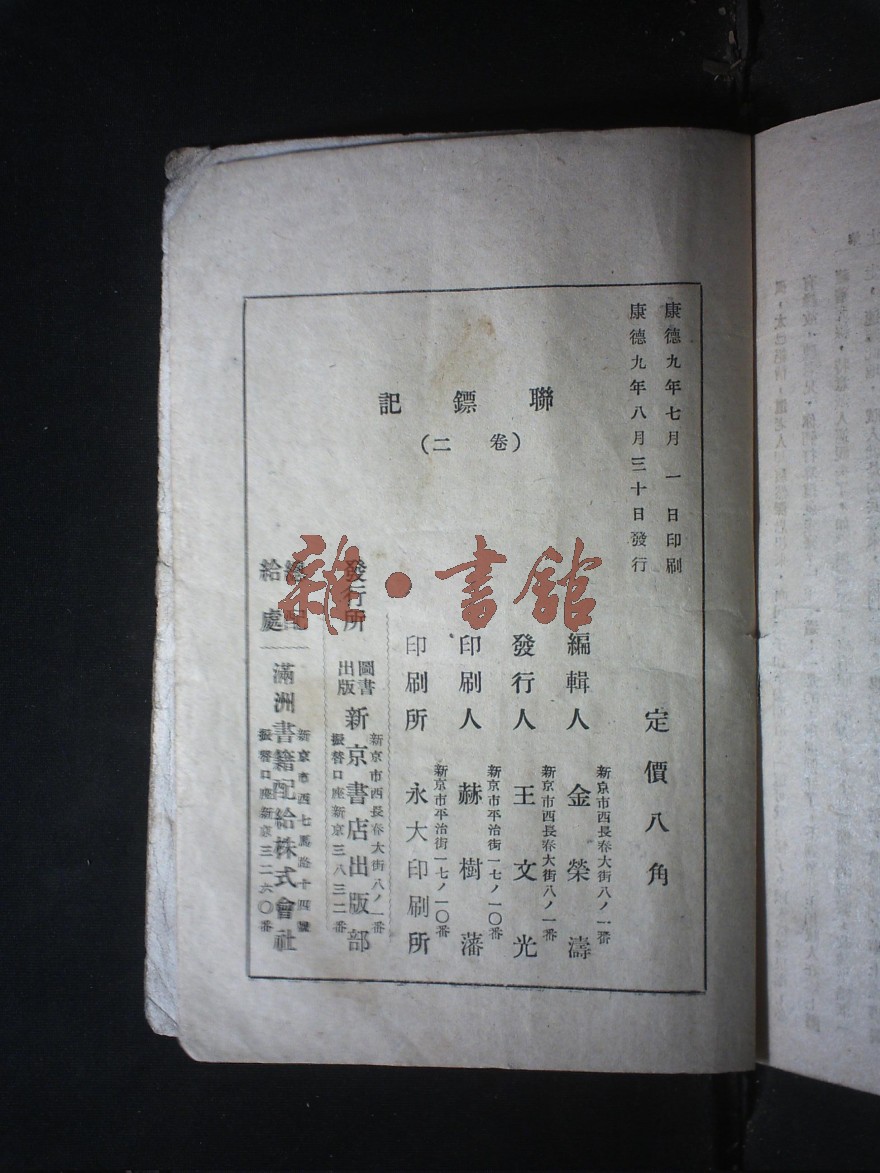 康德九年七月一日印刷
康德九年八月三十日發行
聯鏢記
(卷二)
定價八角
新京市西長春大街八ノ一番
編輯人 金榮濤
新京市西長春大街八ノ一番
發行人 王文光
新京市平治街一七ノ一〇番
印刷人 赫樹藩
新京市平治街一七ノ一〇番
印刷所 永大印刷所
新京市西長春大街八ノ一番
發行所 圖書出版 新京書店出版部
振替口座新京三八三二番
新京市西七馬路十四號
總配給處 滿洲書籍配給株式會社
振替口座新京三二六〇番
雜·書館